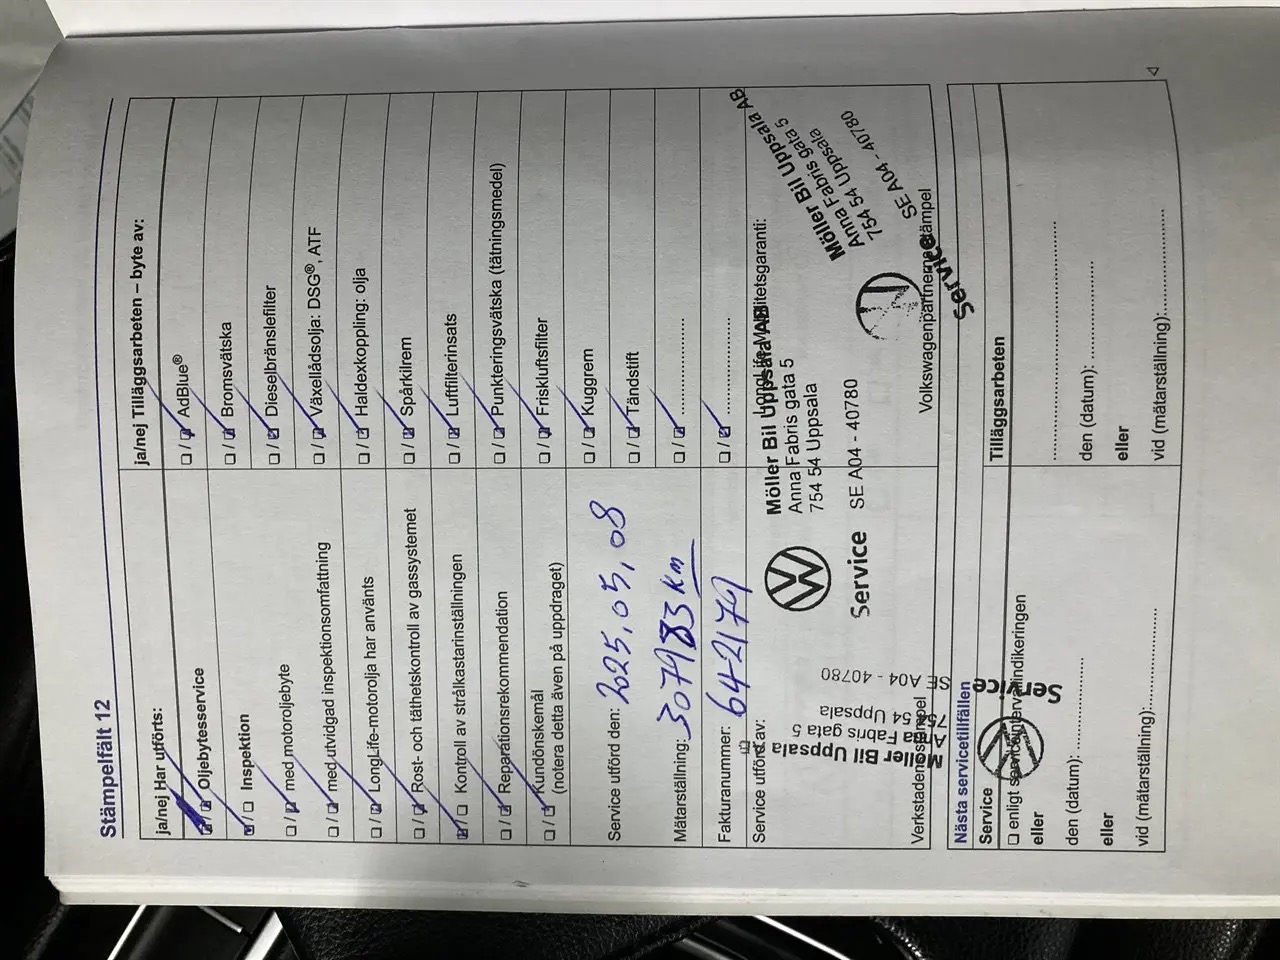 Stämpelfält 12
ja/nej Har utförts:
Oljebytesservice
Inspektion
med motoroljebyte
med utvidgad inspektionsomfattning
LongLife-motorolja har använts
Rost- och täthetskontroll av gassystemet
Kontroll av strålkastarinställningen
Reparationsrekommendation
Kundönskemål
(notera detta även på uppdraget)
Service utförd den: 2025.05.08
Mätarställning: 307983 km
Fakturanummer: 642179
Service utförd av:
Verkstadens stämpel
ja/nej Tilläggsarbeten – byte av:
AdBlue®
Bromsvätska
Dieselbränslefilter
Växellådsolja: DSG®, ATF
Haldexkoppling: olja
Spårkilrem
Luftfilterinsats
Punkteringsvätska (tätningsmedel)
Friskluftsfilter
Kuggrem
Tändstift
LongLife Mobilitetsgaranti:
Volkswagenpartnerns stämpel
Möller Bil Uppsala AB
Anna Fabris gata 5
754 54 Uppsala
Service SE A04 - 40780
Möller Bil Uppsala AB
Anna Fabris gata 5
754 54 Uppsala
SE A04 - 40780
Service
Möller Bil Uppsala AB
Anna Fabris gata 5
754 54 Uppsala
SE A04 - 40780
Service
Nästa servicetillfällen
Service
enligt serviceintervallindikeringen
eller
den (datum):
eller
vid (mätarställning):
Tilläggsarbeten
den (datum):
eller
vid (mätarställning):